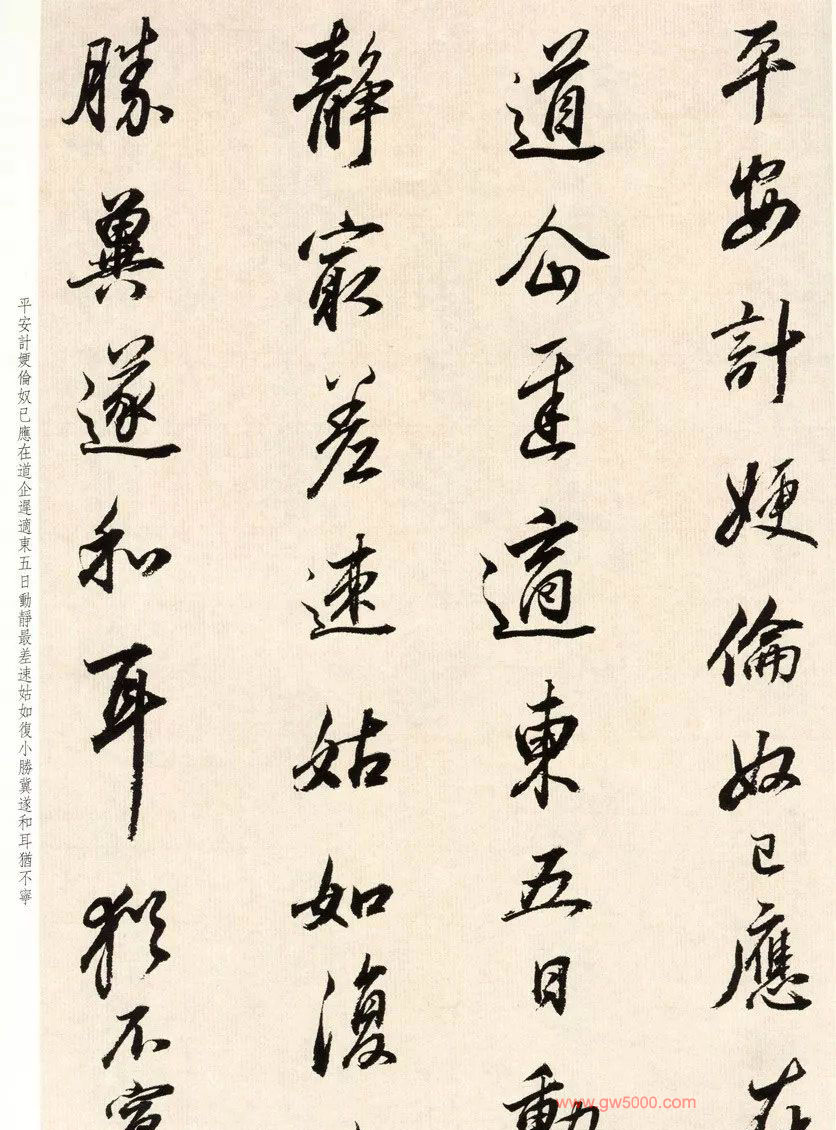 平安計㛐倫奴已應在
道企遲適東五日動
靜最差速姑如復小
勝冀遂和耳猶不寧
平安計㛐倫奴已應在道企遲適東五日動靜最差速姑如復小勝冀遂和耳猶不寧
www.gw5000.com